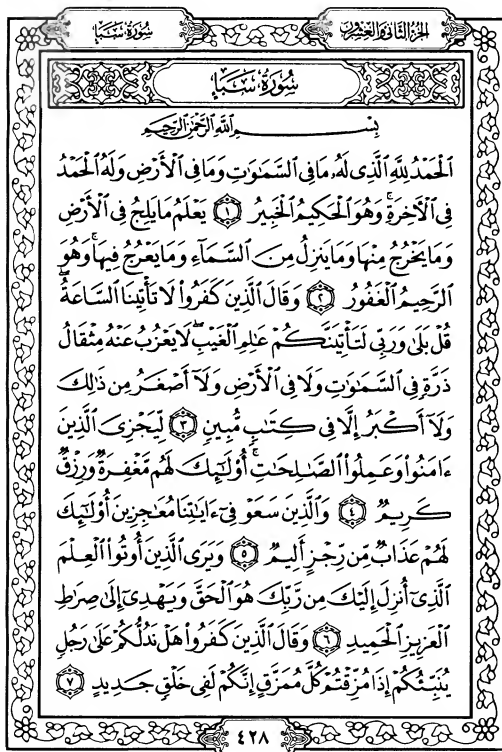 الجزء الثاني والعشرون
سورة سبإ
سورة سبإ
بسم الله الرحمن الرحيم
ٱلْحَمْدُ لِلَّهِ ٱلَّذِى لَهُۥ مَا فِى ٱلسَّمَٰوَٰتِ وَمَا فِى ٱلْأَرْضِ وَلَهُ ٱلْحَمْدُ
فِى ٱلْءَاخِرَةِ ۚ وَهُوَ ٱلْحَكِيمُ ٱلْخَبِيرُ ١ يَعْلَمُ مَا يَلِجُ فِى ٱلْأَرْضِ
وَمَا يَخْرُجُ مِنْهَا وَمَا يَنزِلُ مِنَ ٱلسَّمَآءِ وَمَا يَعْرُجُ فِيهَا ۚ وَهُوَ
ٱلرَّحِيمُ ٱلْغَفُورُ ٢ وَقَالَ ٱلَّذِينَ كَفَرُوا۟ لَا تَأْتِينَا ٱلسَّاعَةُ ۖ
قُلْ بَلَىٰ وَرَبِّى لَتَأْتِيَنَّكُمْ عَٰلِمِ ٱلْغَيْبِ ۖ لَا يَعْزُبُ عَنْهُ مِثْقَالُ
ذَرَّةٍ فِى ٱلسَّمَٰوَٰتِ وَلَا فِى ٱلْأَرْضِ وَلَآ أَصْغَرُ مِن ذَٰلِكَ
وَلَآ أَكْبَرُ إِلَّا فِى كِتَٰبٍ مُّبِينٍ ٣ لِّيَجْزِىَ ٱلَّذِينَ
ءَامَنُوا۟ وَعَمِلُوا۟ ٱلصَّٰلِحَٰتِ ۚ أُو۟لَٰٓئِكَ لَهُم مَّغْفِرَةٌ وَرِزْقٌ
كَرِيمٌ ٤ وَٱلَّذِينَ سَعَوْ فِىٓ ءَايَٰتِنَا مُعَٰجِزِينَ أُو۟لَٰٓئِكَ
لَهُمْ عَذَابٌ مِّن رِّجْزٍ أَلِيمٌ ٥ وَيَرَى ٱلَّذِينَ أُوتُوا۟ ٱلْعِلْمَ
ٱلَّذِىٓ أُنزِلَ إِلَيْكَ مِن رَّبِّكَ هُوَ ٱلْحَقَّ وَيَهْدِىٓ إِلَىٰ صِرَٰطِ
ٱلْعَزِيزِ ٱلْحَمِيدِ ٦ وَقَالَ ٱلَّذِينَ كَفَرُوا۟ هَلْ نَدُلُّكُمْ عَلَىٰ رَجُلٍ
يُنَبِّئُكُمْ إِذَا مُزِّقْتُمْ كُلَّ مُمَزَّقٍ إِنَّكُمْ لَفِى خَلْقٍ جَدِيدٍ ٧
٤٢٨